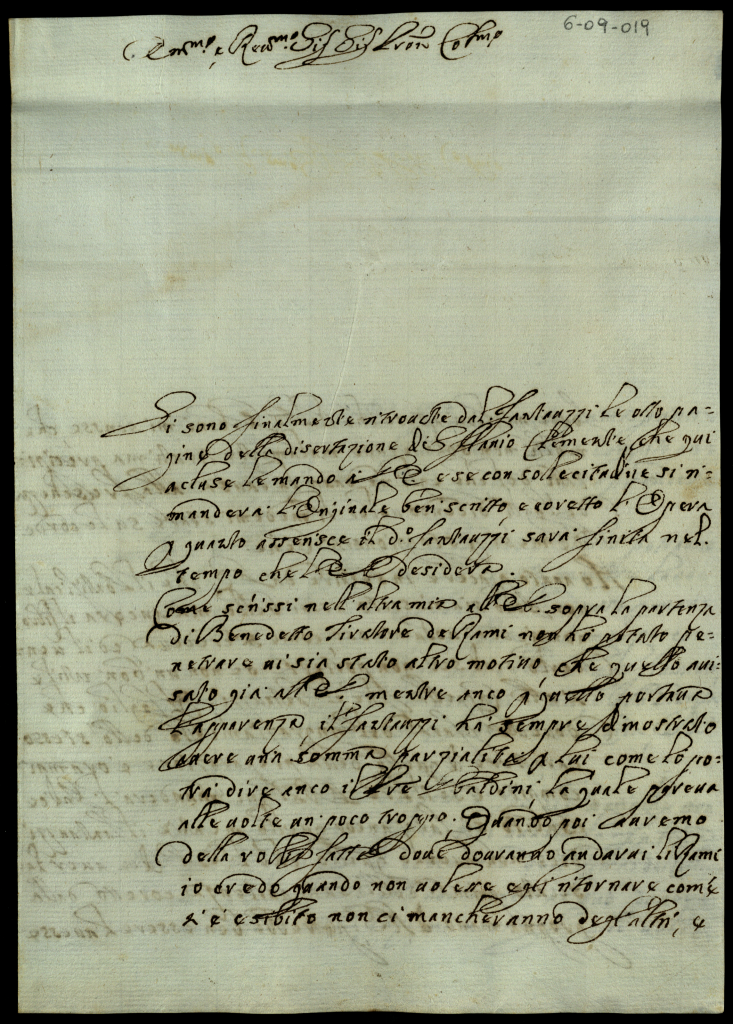 6-09-019
Em.mo, e Reu.mo Sig Sig Pron Col.mo
Si sono finalmente ritrouate dal Fantauzzi le otto pa=
gine della disertazione di S. Flauio Clemente che qui
acluse le mando a V.E. e se con sollecitudine si ri=
manderà l'Originale ben scritto e coretto l'Opera
p quanto asserisce il d.o Fantauzzi sarà finita nel
tempo che V.E. desidera.
Come scrissi nell'altra mia all'E.V. sopra la partenza
di Benedetto Tiratore de Rami non hò potuto pe=
netrare ui sia stato altro motiuo che quello aui=
sato già all'E.V. mentre anco p quello portaua
l'apparenza, il Fantauzzi hà sempre dimostrato
auere una somma parzialità p lui come lo po=
trà dire anco il Pre Baldini, la quale pareua
alle uolte un poco troppo. Quando poi auremo
della robba fatta doue douranno andarui li Rami
io credo quando non uolesse egli ritornare come
si è esibito non ci mancheranno degl'altri, e